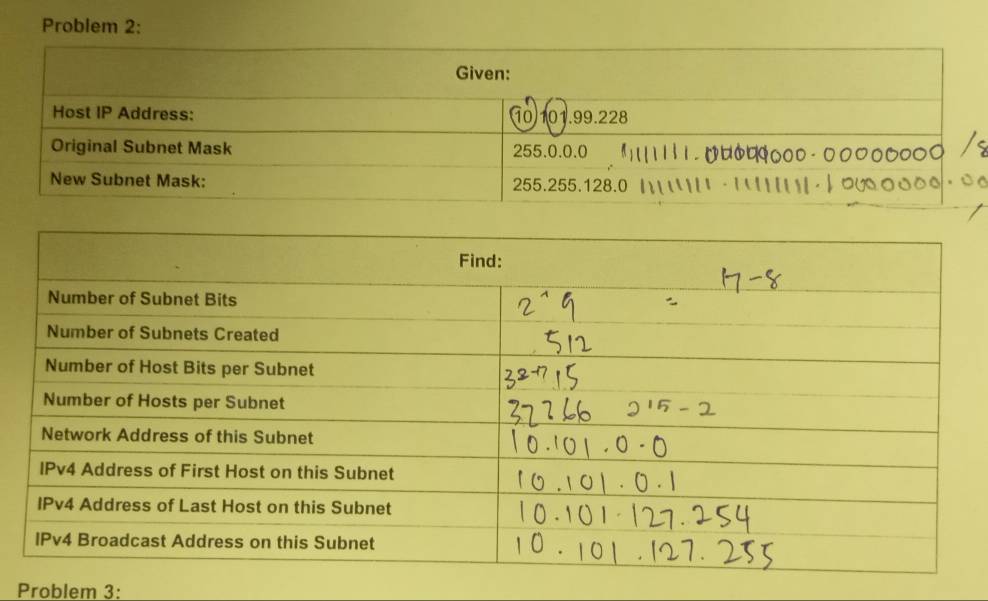 Problem 2:
Given:
Host IP Address: 10.101.99.228
Original Subnet Mask 255.0.0.0 11111111.00000000.00000000 /8
New Subnet Mask: 255.255.128.0 11111111.11111111.10000000.00
Find:
17-8
Number of Subnet Bits 2^9 =
Number of Subnets Created 512
Number of Host Bits per Subnet 32-17 15
Number of Hosts per Subnet 32766 215-2
Network Address of this Subnet 10.101.0.0
IPv4 Address of First Host on this Subnet 10.101.0.1
IPv4 Address of Last Host on this Subnet 10.101.127.254
IPv4 Broadcast Address on this Subnet 10.101.127.255
Problem 3: